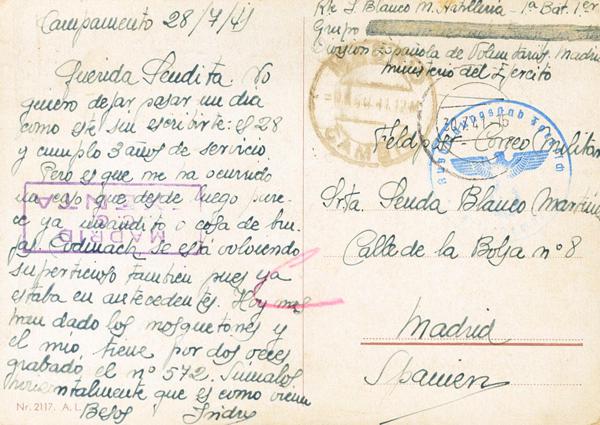 Campamento 28/7/41
Querida Sendita. No
quiero dejar pasar un dia
como este sin escribirte: el 28
y cumplo 3 años de servicio
Pero es que me ha ocurrido
una cosa que desde luego pare-
ce ya inaudito o cosa de bru-
jas. Codinach se está volviendo
supersticioso tambien pues ya
estaba en antecedentes. Hoy nos
han dado los mosquetones y
el mio tiene por dos veces
grabado el nº 572. Sumalos
horizontalmente que es como viene
Besos Isidro
Nr. 2117. A. L.
Rte I. Blanco M. Artilleria - 1ª Bat. 1er
Grupo
Division Española de Voluntarios. Madrid
Ministerio del Ejercito
Feldpost - Correo Militar
Srta. Senda Blanco Martinez
Calle de la Bolsa nº 8
Madrid
Spanien
MADRID